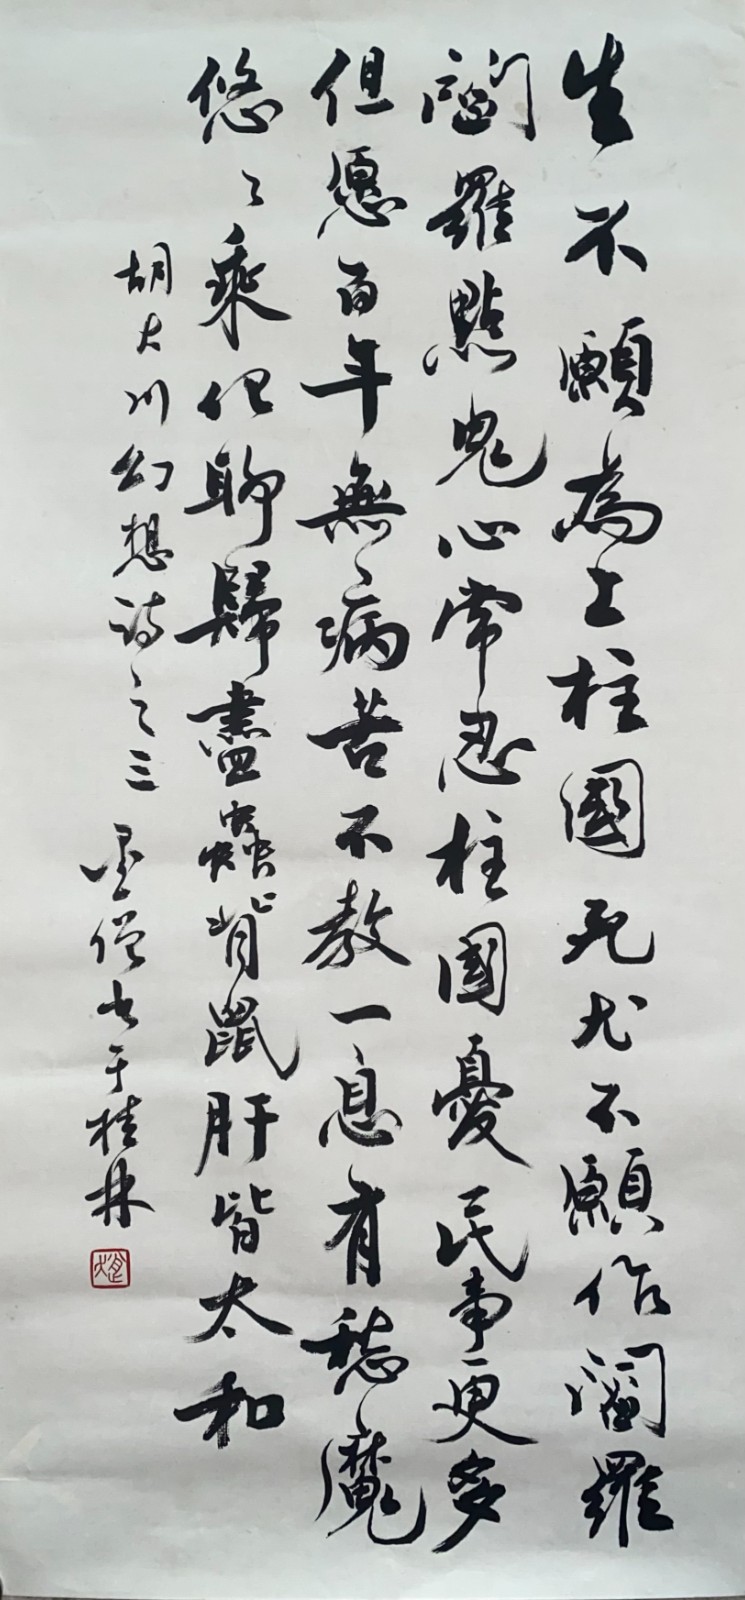 生不願為上柱國死尤不願作閻羅
閻羅點鬼心常忍柱國憂民事更多
但愿百年無病苦不教一息有愁魔
悠々乘化聊歸盡蟲背鼠肝皆太和
胡大川幻想诗之三 墨僧书于桂林